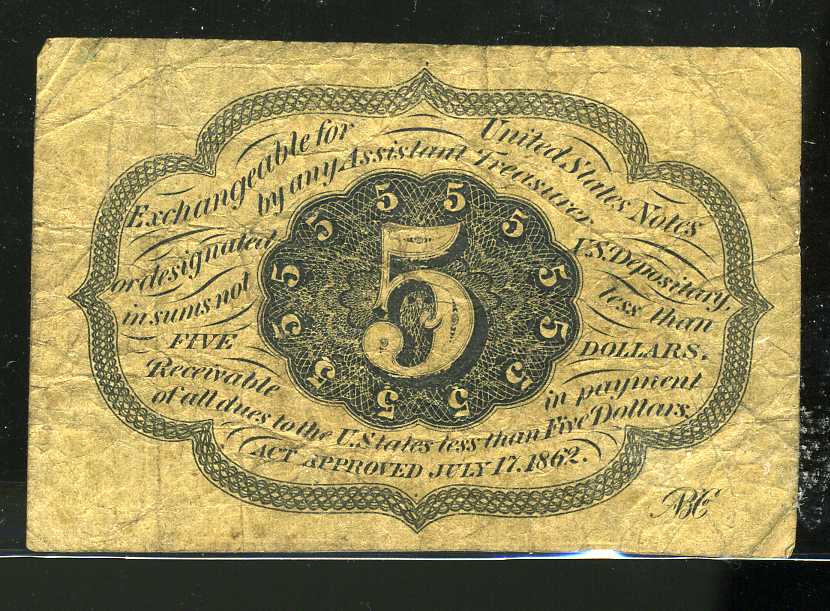 Exchangeable for United States Notes
by any Assistant Treasurer
or designated U.S. Depositary,
in sums not less than
FIVE DOLLARS.
Receivable in payment
of all dues to the U. States less than Five Dollars.
ACT APPROVED JULY 17, 1862.
5 5 5 5 5 5 5 5 5 5 5 5 5 5
5
ABCo